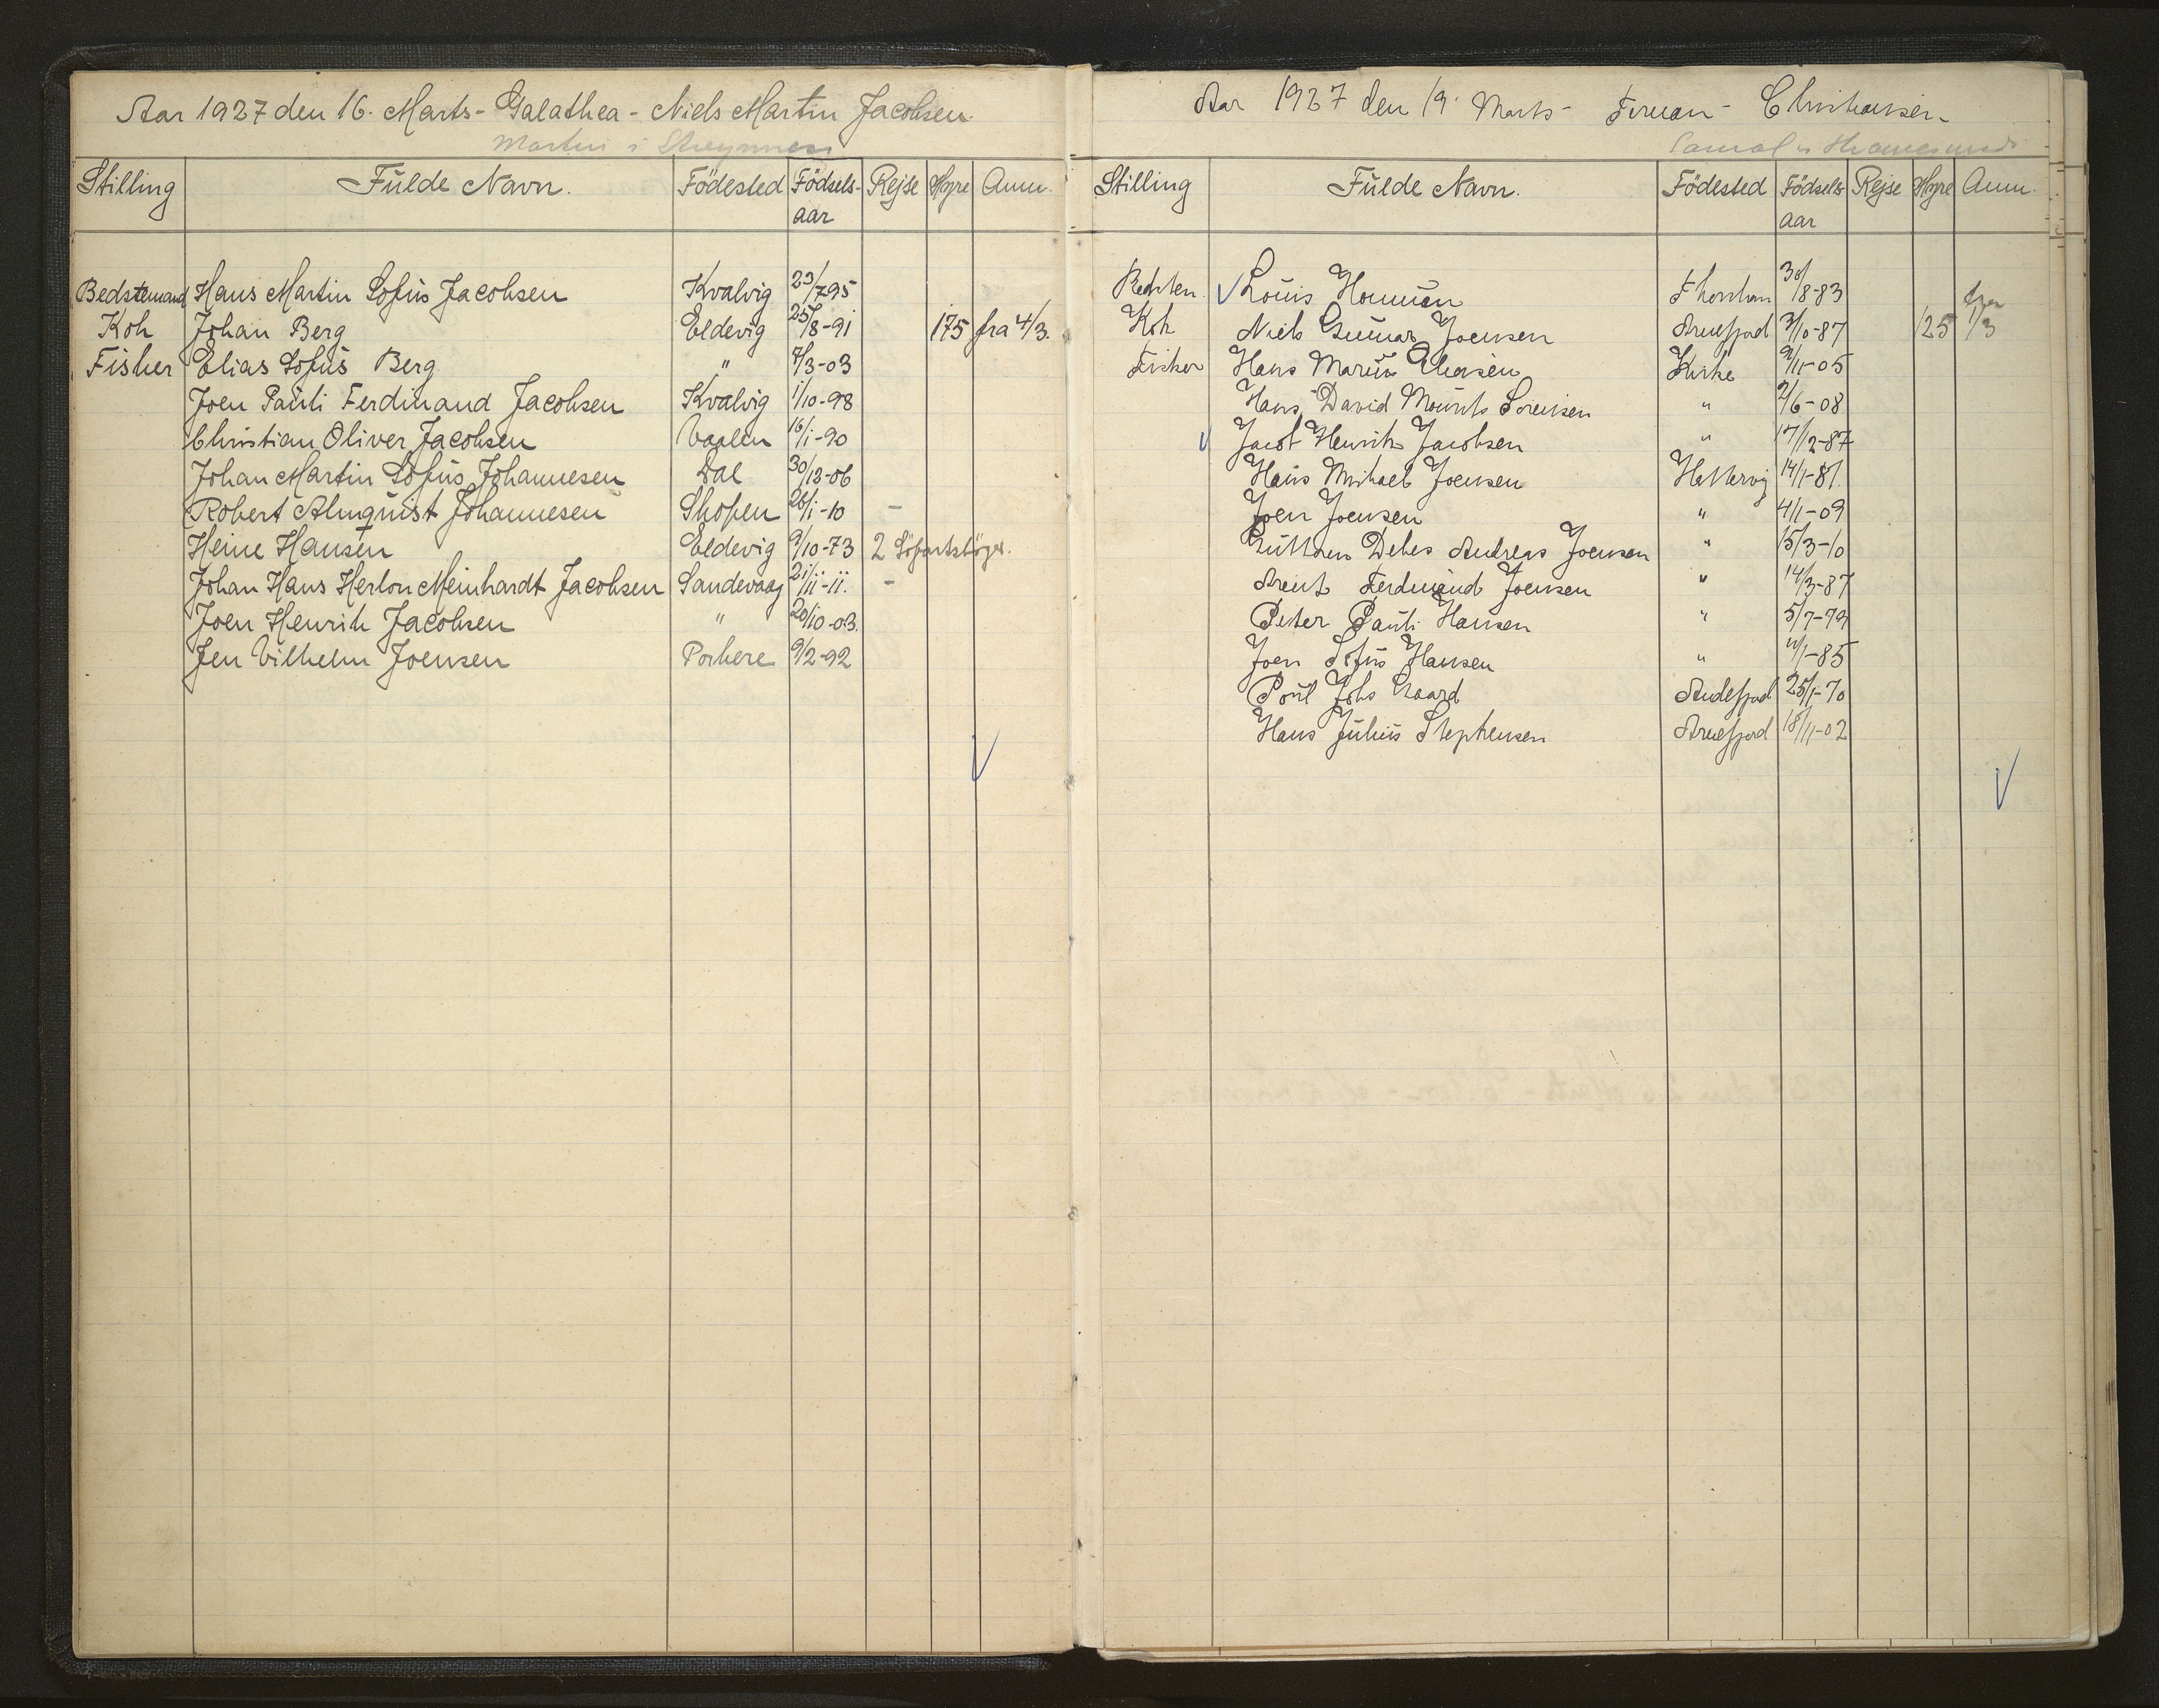 Aar 1927 den 16. Marts - Galathea - Niels Martin Jacobsen.
Martin i Streymnesi
Stilling Fulde Navn. Födested Födsels- aar Rejse Hyre Anm.
Bedstemand Hans Martin Sofus Jacobsen Kvalvig 23/7 95
Kok Johan Berg Eldevig 25/8-91 175 fra 4/3.
Fisker Elias Sofus Berg " 7/3-03
Joen Pauli Ferdinand Jacobsen Kvalvig 1/10-98
Christian Oliver Jacobsen Vaalen 16/1-90
Johan Martin Sofus Johannesen Dal 30/12-06
Robert Almquist Johannesen Skopen 26/1-10 -
Heine Hansen Eldevig 9/10-73 2 Söfartsböger.
Johan Hans Herlon Meinhardt Jacobsen Sandevaag 21/11-11. -
Joen Henrik Jacobsen " 20/10-03.
Jen Vilhelm Joensen Porkere 9/2-92
Aar 1927 den 19. Marts -
Stilling Fulde Navn. Födested Födsels- aar Rejse Hyre Anm.
Louis 30/8-83
Kok Niels Gunnar Joensen Arnefjord 3/10-87 125 fra 1/3
Fisker Hans Marius Kirke 9/11-05
Hans David Mourits Sörensen " 2/6-08
Jacob Henrik Jacobsen " 17/12-87
Hans Michael Joensen Hattervig 14/1-81.
Joen Joensen " 4/1-09
Guttorm Debes Andreas Joensen " 15/3-10
Arent Ferdinand Joensen " 14/3-87
Peter Pauli Hansen " 5/7-79
Joen Sofus Hansen " 11/1-85
Poul Johs Gaard Andefjord 25/1-70
Hans Julius Stephensen Arnefjord 18/11-02